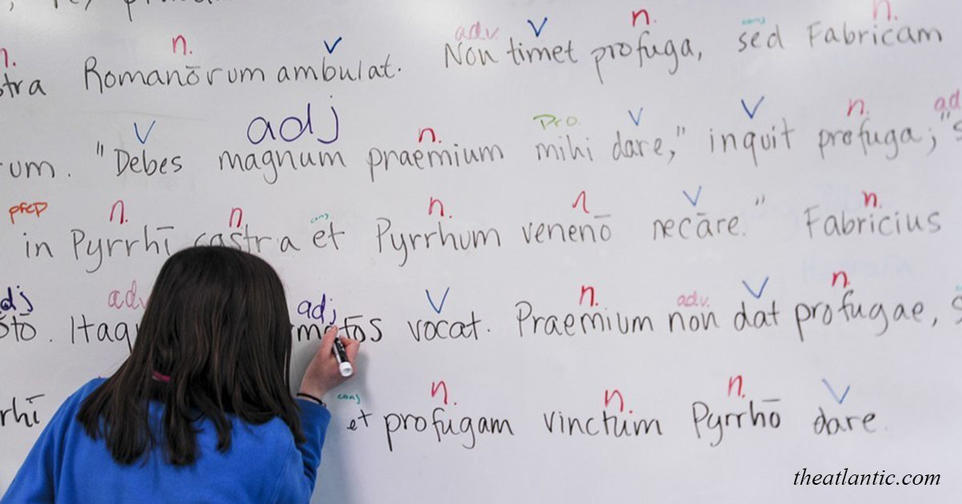 n. n. v adv. v n. conj n.
Romanōrum ambulat. Non timet profuga, sed Fabricam
v adj n. Pro. v v n. ad
rum. "Debes magnum praemium mihi dare," inquit profuga; "s
prep n. n. conj n. n v n.
in Pyrrhī castra et Pyrrhum venenō necāre." Fabricius
adj adv adj v n. adv. v n.
Itaq vocat. Praemium non dat profugae, s
conj n. n. n. v
rrhī et profugam vinctum Pyrrhō dare.
theatlantic.com